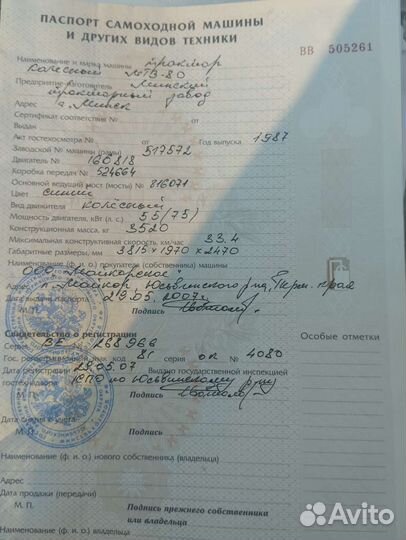 ПАСПОРТ САМОХОДНОЙ МАШИНЫ
И ДРУГИХ ВИДОВ ТЕХНИКИ
ВВ 505261
Наименование и марка машины трактор
колесный МТЗ-80
Предприятие-изготовитель Минский
тракторный завод
Адрес г. Минск
Сертификат соответствия № от
Выдан
Акт гостехосмотра № от Год выпуска 1987
Заводской № машины (рамы) 517572
Двигатель № 160818
Коробка передач № 524664
Основной ведущий мост (мосты) № 816071
Цвет синий
Вид двигателя колёсный
Мощность двигателя, кВт (л. с.) 55 (75)
Конструкционная масса, кг 3520
Максимальная конструктивная скорость, км/час 33.4
Габаритные размеры, мм 3815×1970×2470
Наименование (ф. и. о.) покупателя (собственника) машины
ООО "Майкорское"
Адрес п. Майкор, Юсьвинского р-на, Перм. края
Дата выдачи паспорта 29.05.2007г.
М. П. Подпись
Свидетельство о регистрации
Особые отметки
Серия ВЕ № 268966
Гос. регистрационный знак код 81 серия ок № 4080
Дата регистрации 29.05.07 Выдано государственной инспекцией
гостехнадзора КПО по Юсьвинскому р-ну
М. П. Подпись
Дата снятия с учета
М. П. Подпись
Наименование (ф. и. о.) нового собственника (владельца)
Адрес
Дата продажи (передачи)
М. П. Подпись прежнего собственника
или владельца
Наименование (ф. и. о.) нового собственника (владельца)
Avito